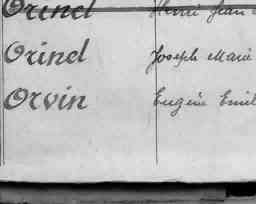 Orind Henri Jean
Orind Joseph Marie
Orvin Eugène Emil